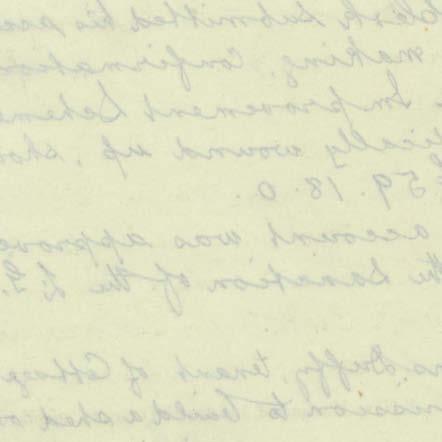 Clerk submitted his
making confirmation
Improvement Scheme
wound up, sho
£59. 18. 0.
account was approve
the sanction of the L. G.
Duffy, tenant of Cottage
to build a shed